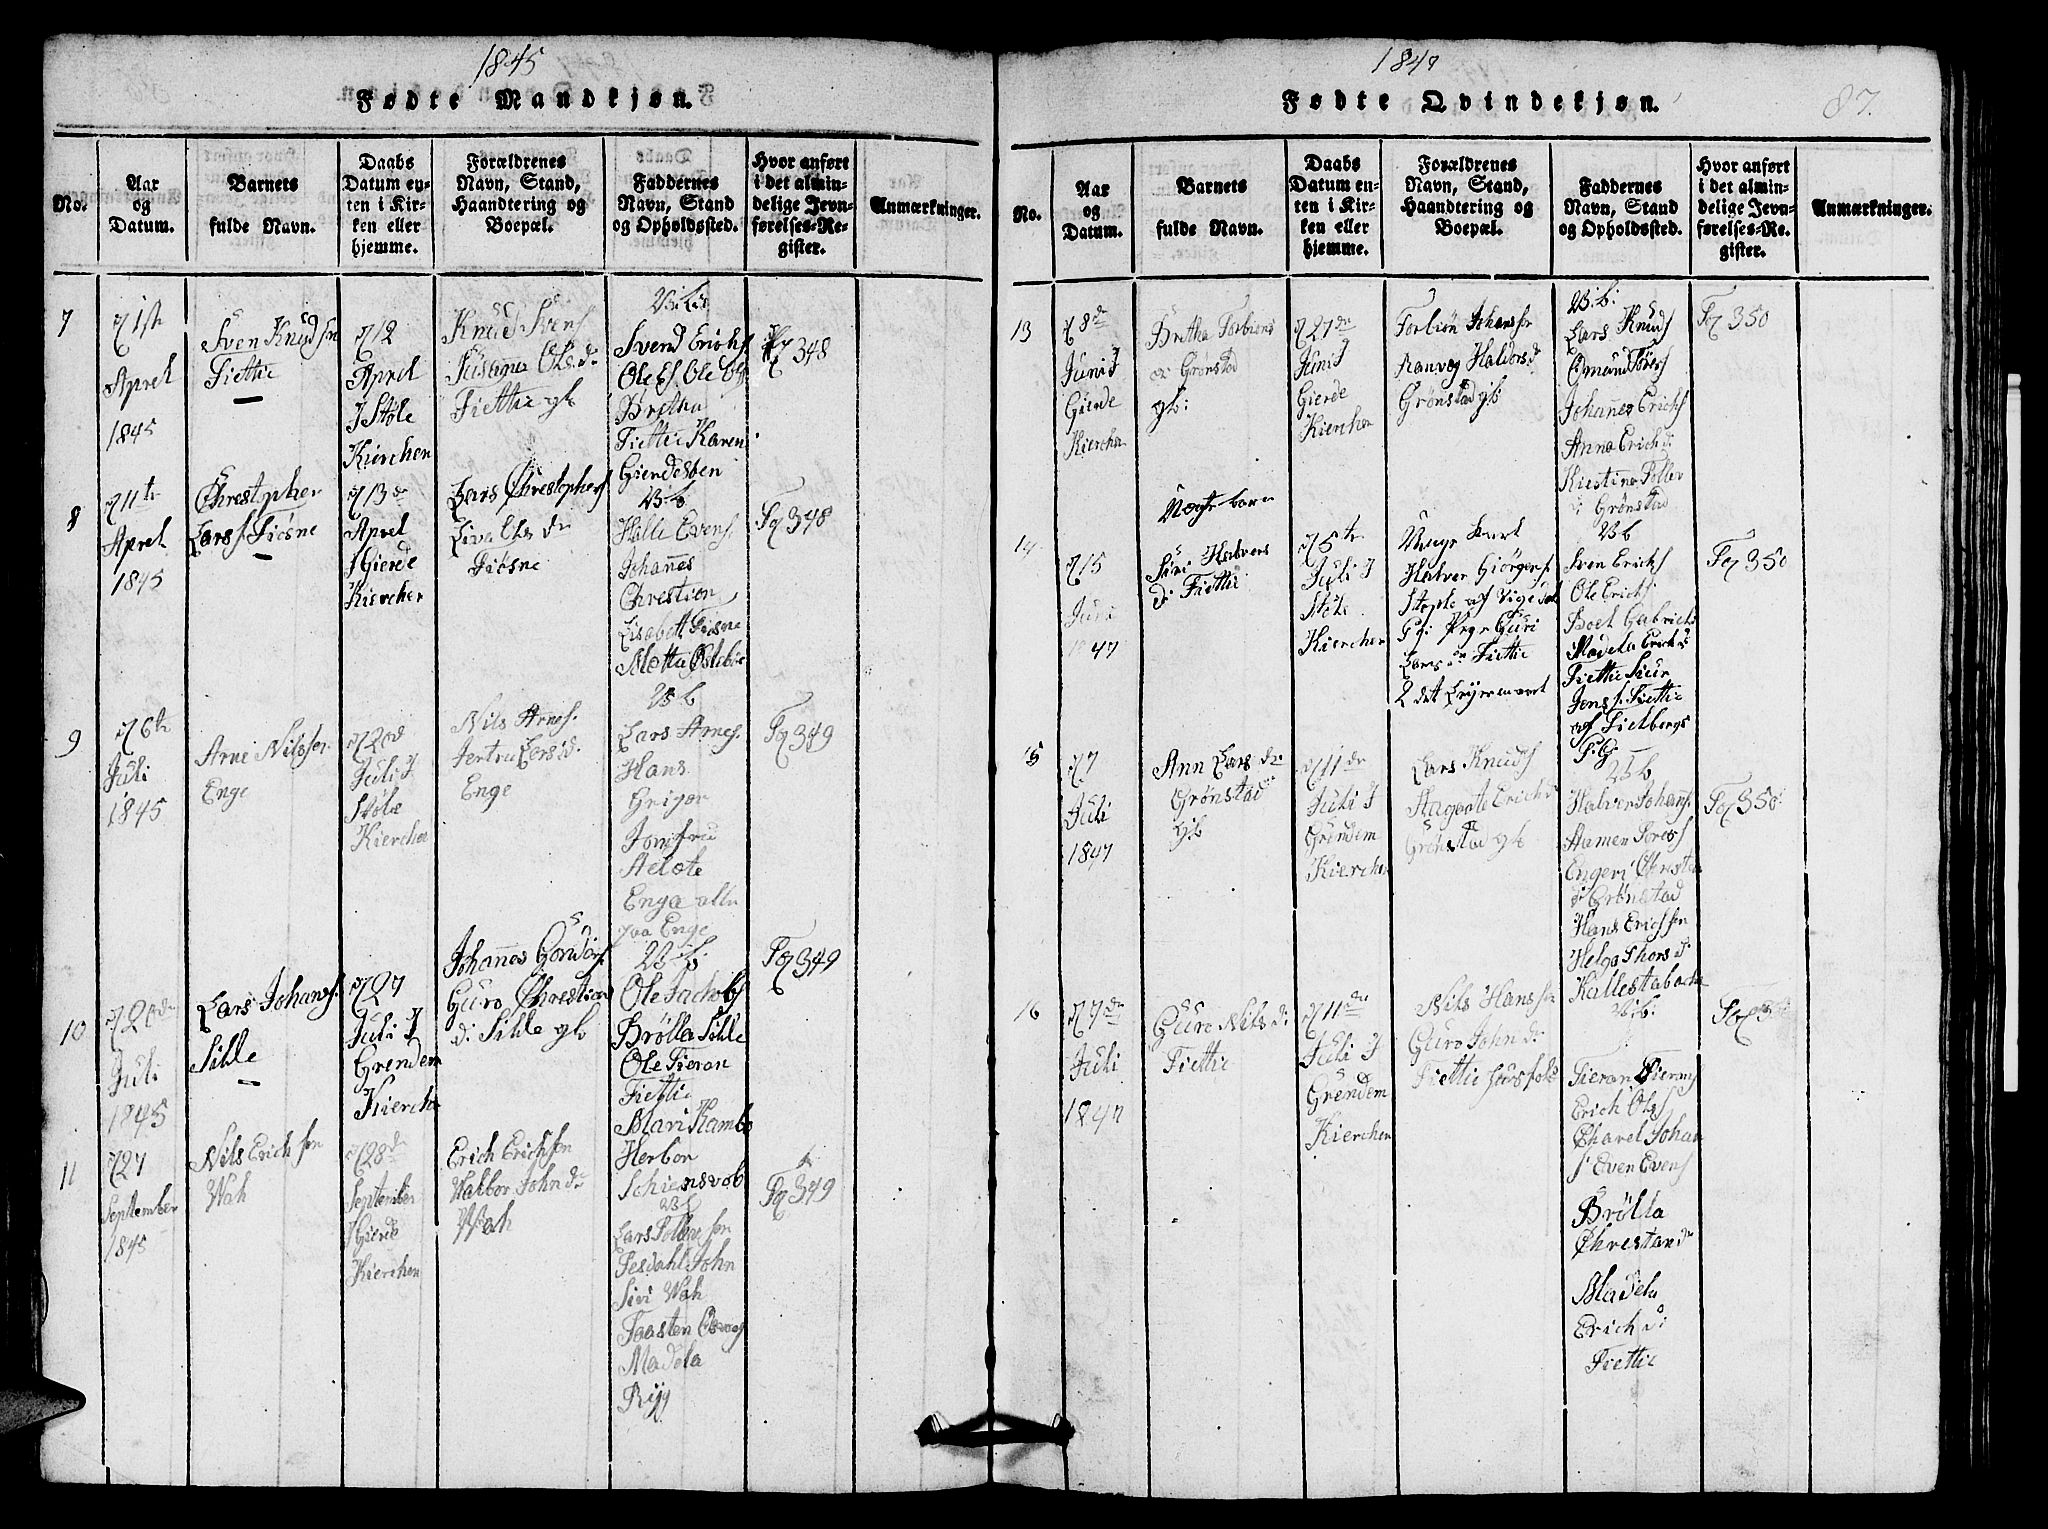 1845
Fødte Mandkjøn.
No.
Aar og Datum.
Barnets fulde Navn.
Daabs Datum enten i Kirken eller hjemme.
Forældrenes Navn, Stand, Haandtering og Boepæl.
Faddernes Navn, Stand og Opholdssted.
Hvor anført i det almindelige Jevnførelses-Register.
Anmærkninger.
7
1ste
Aprel
1845
Sven Knudsøn
Fiettie
12
Aprel
J Støle
Kierchen
Knud Svens
Susanna Ols dr
Fiettie gb
Svend Erichs
Ole Els. Ole Ols
Bretha
Fiettie Karen
Giendesben
Fq 348
8
11te
Aprel
1845
Chrestopher
Lars s. Fiøsne
13de
Aprel
J Gierde
Kierchen
Lars Chrestophers
Liva Ols dr
Fiøsne
V b
Halle Evens.
Johannes
Chrestion
Lisabett Fiøsne
Metta Østebie
Fq 348
9
6te
Juli
1845
Arne Nilssen
Enge
20d
Juli J
Støle
Kierchen
Nils Arnes.
Jertru Larsd.
Enge
V b
Lars Arnes.
Hans
Griger
Jomfru
Aelote
Enga alle
paa Enge
Fq 349
10
20de
Juli
1845
Lars Johans.
Silde
27
Juli J
Grendem
Kierche
Johannes Gondars
Guro Chrestian
d: Silde gb
V b
Ole Jachobs
Brølla Silde
Ole Fieran
Fiettie
Mari Kambe
Herbor
Schiensvob
Fq 349
11
27
September
1845
Nils Erichsøn
Wah
28de
September
J Gierde
Kierchen
Erich Erichsøn
Walbor John dr
Wah
V b
Lars Tollevsøn
Tesdahl John
Sivi Wah
Taasten Osvog
Madela
Ryg
Fq 349
1847
Fødte Qvindekjøn.
87.
No.
Aar og Datum.
Barnets fulde Navn.
Daabs Datum enten i Kirken eller hjemme.
Forældrenes Navn, Stand, Haandtering og Boepæl.
Faddernes Navn, Stand og Opholdssted.
Hvor anført i det almindelige Jevnførelses-Register.
Anmærkninger.
13
8de
Juni J
Gierde
Kierchen
Bretha Torbiøns
dr Grønstad
gb:
27de
Juni J
Gierde
Kierchen
Torbiøn Johansør
Ranvog Haldors dr
Grønstad gb
V: b:
Lars Knuds
Omund Tores
Johannes Erichs
Anna Erich d:
Kiestina Toller
d: Grønstad
Fq 350
14
15
Juni
1847
Uegte barn
Siri Halvers
d: Fiettie
5te
Juli J
Støle
Kierchen
Unge kart
Halver Giørgens.
Stople af Vigedal
Pige Guri
Lars dr Fiettie
2 det Leyermaal
V b
Sven Erichs
Ole Erichs
Boel Gabriels
Madela Erich d:
Fiettie Siur
Jens s. Fiettie
af Fietbergs
Fq 350
15
7
Juli
1847
Ann Lars dr
Grønstad
gb
11de
Juli J
Grendem
Kierchen
Lars Knuds
Aagaate Erich d
Grønstad gb
V b
Halver Johans.
Aamen Tores
Engeri Chresten
d: Grønstad
Hans Erichsøn
Helga Thors d:
Kallestabache
Fq 350
16
7de
Juli
1847
Guro Nils d:
Fiettie
11de
Juli J
Grendem
Kierchen
Nils Hansøn
Guro John dr
Fiettie Husfolk
V: b:
Fieran Fierans
Erich Ols
Charel Johan
s. Even Evens
Brølla
Chrestand
Madela
Erich d:
Fiettie